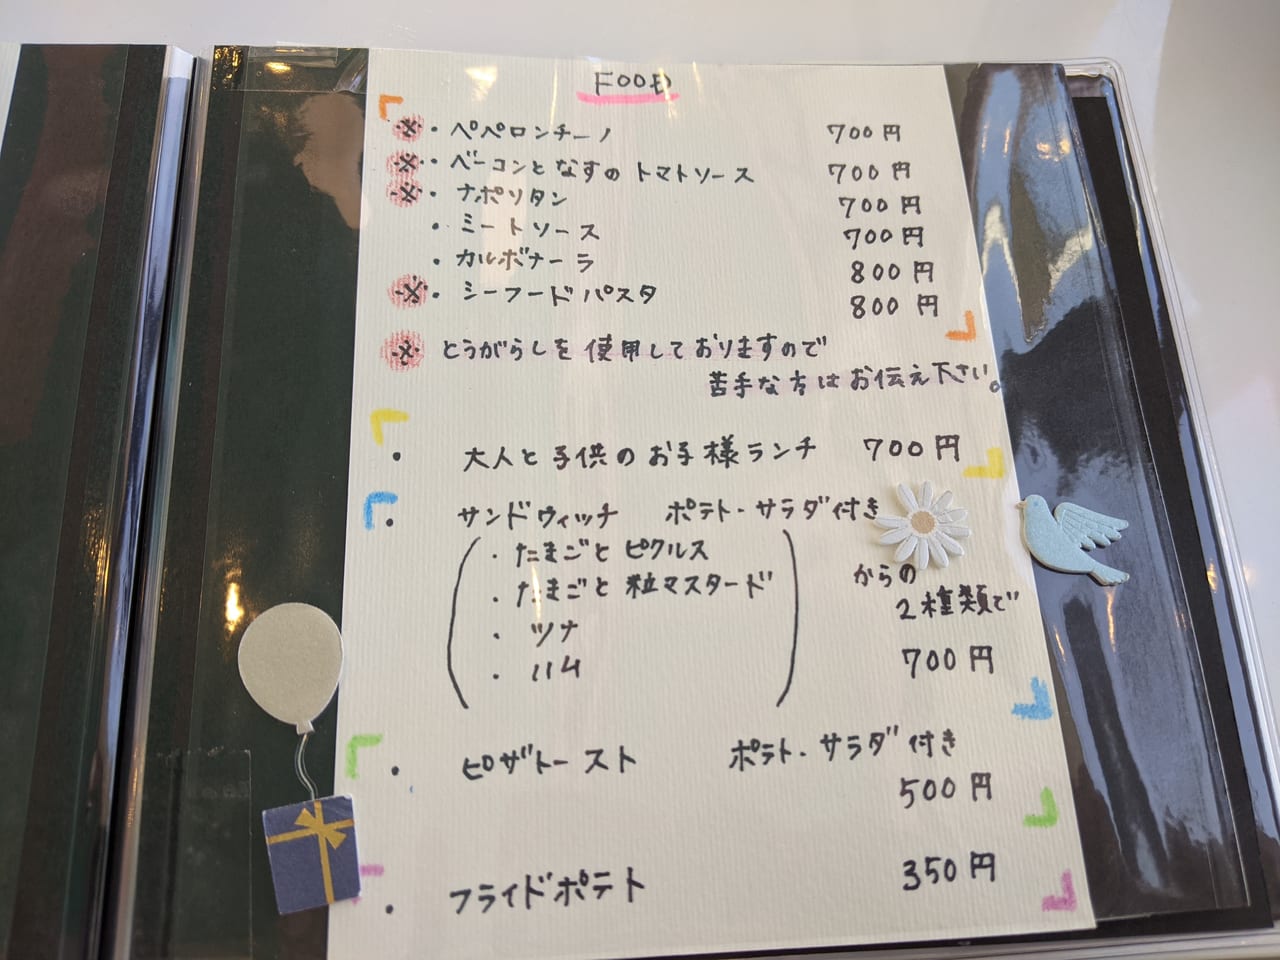 FOOD
※・ペペロンチーノ 700円
※・ベーコンとなすのトマトソース 700円
※・ナポリタン 700円
・ミートソース 700円
・カルボナーラ 800円
※・シーフードパスタ 800円
※ とうがらしを使用しておりますので
苦手な方はお伝え下さい。
・ 大人と子供のお子様ランチ 700円
・ サンドウィッチ ポテト・サラダ付き
・たまごとピクルス
・たまごと粒マスタード
・ツナ
・ハム
からの
2種類で
700円
・ ピザトースト ポテト・サラダ付き
500円
・ フライドポテト 350円